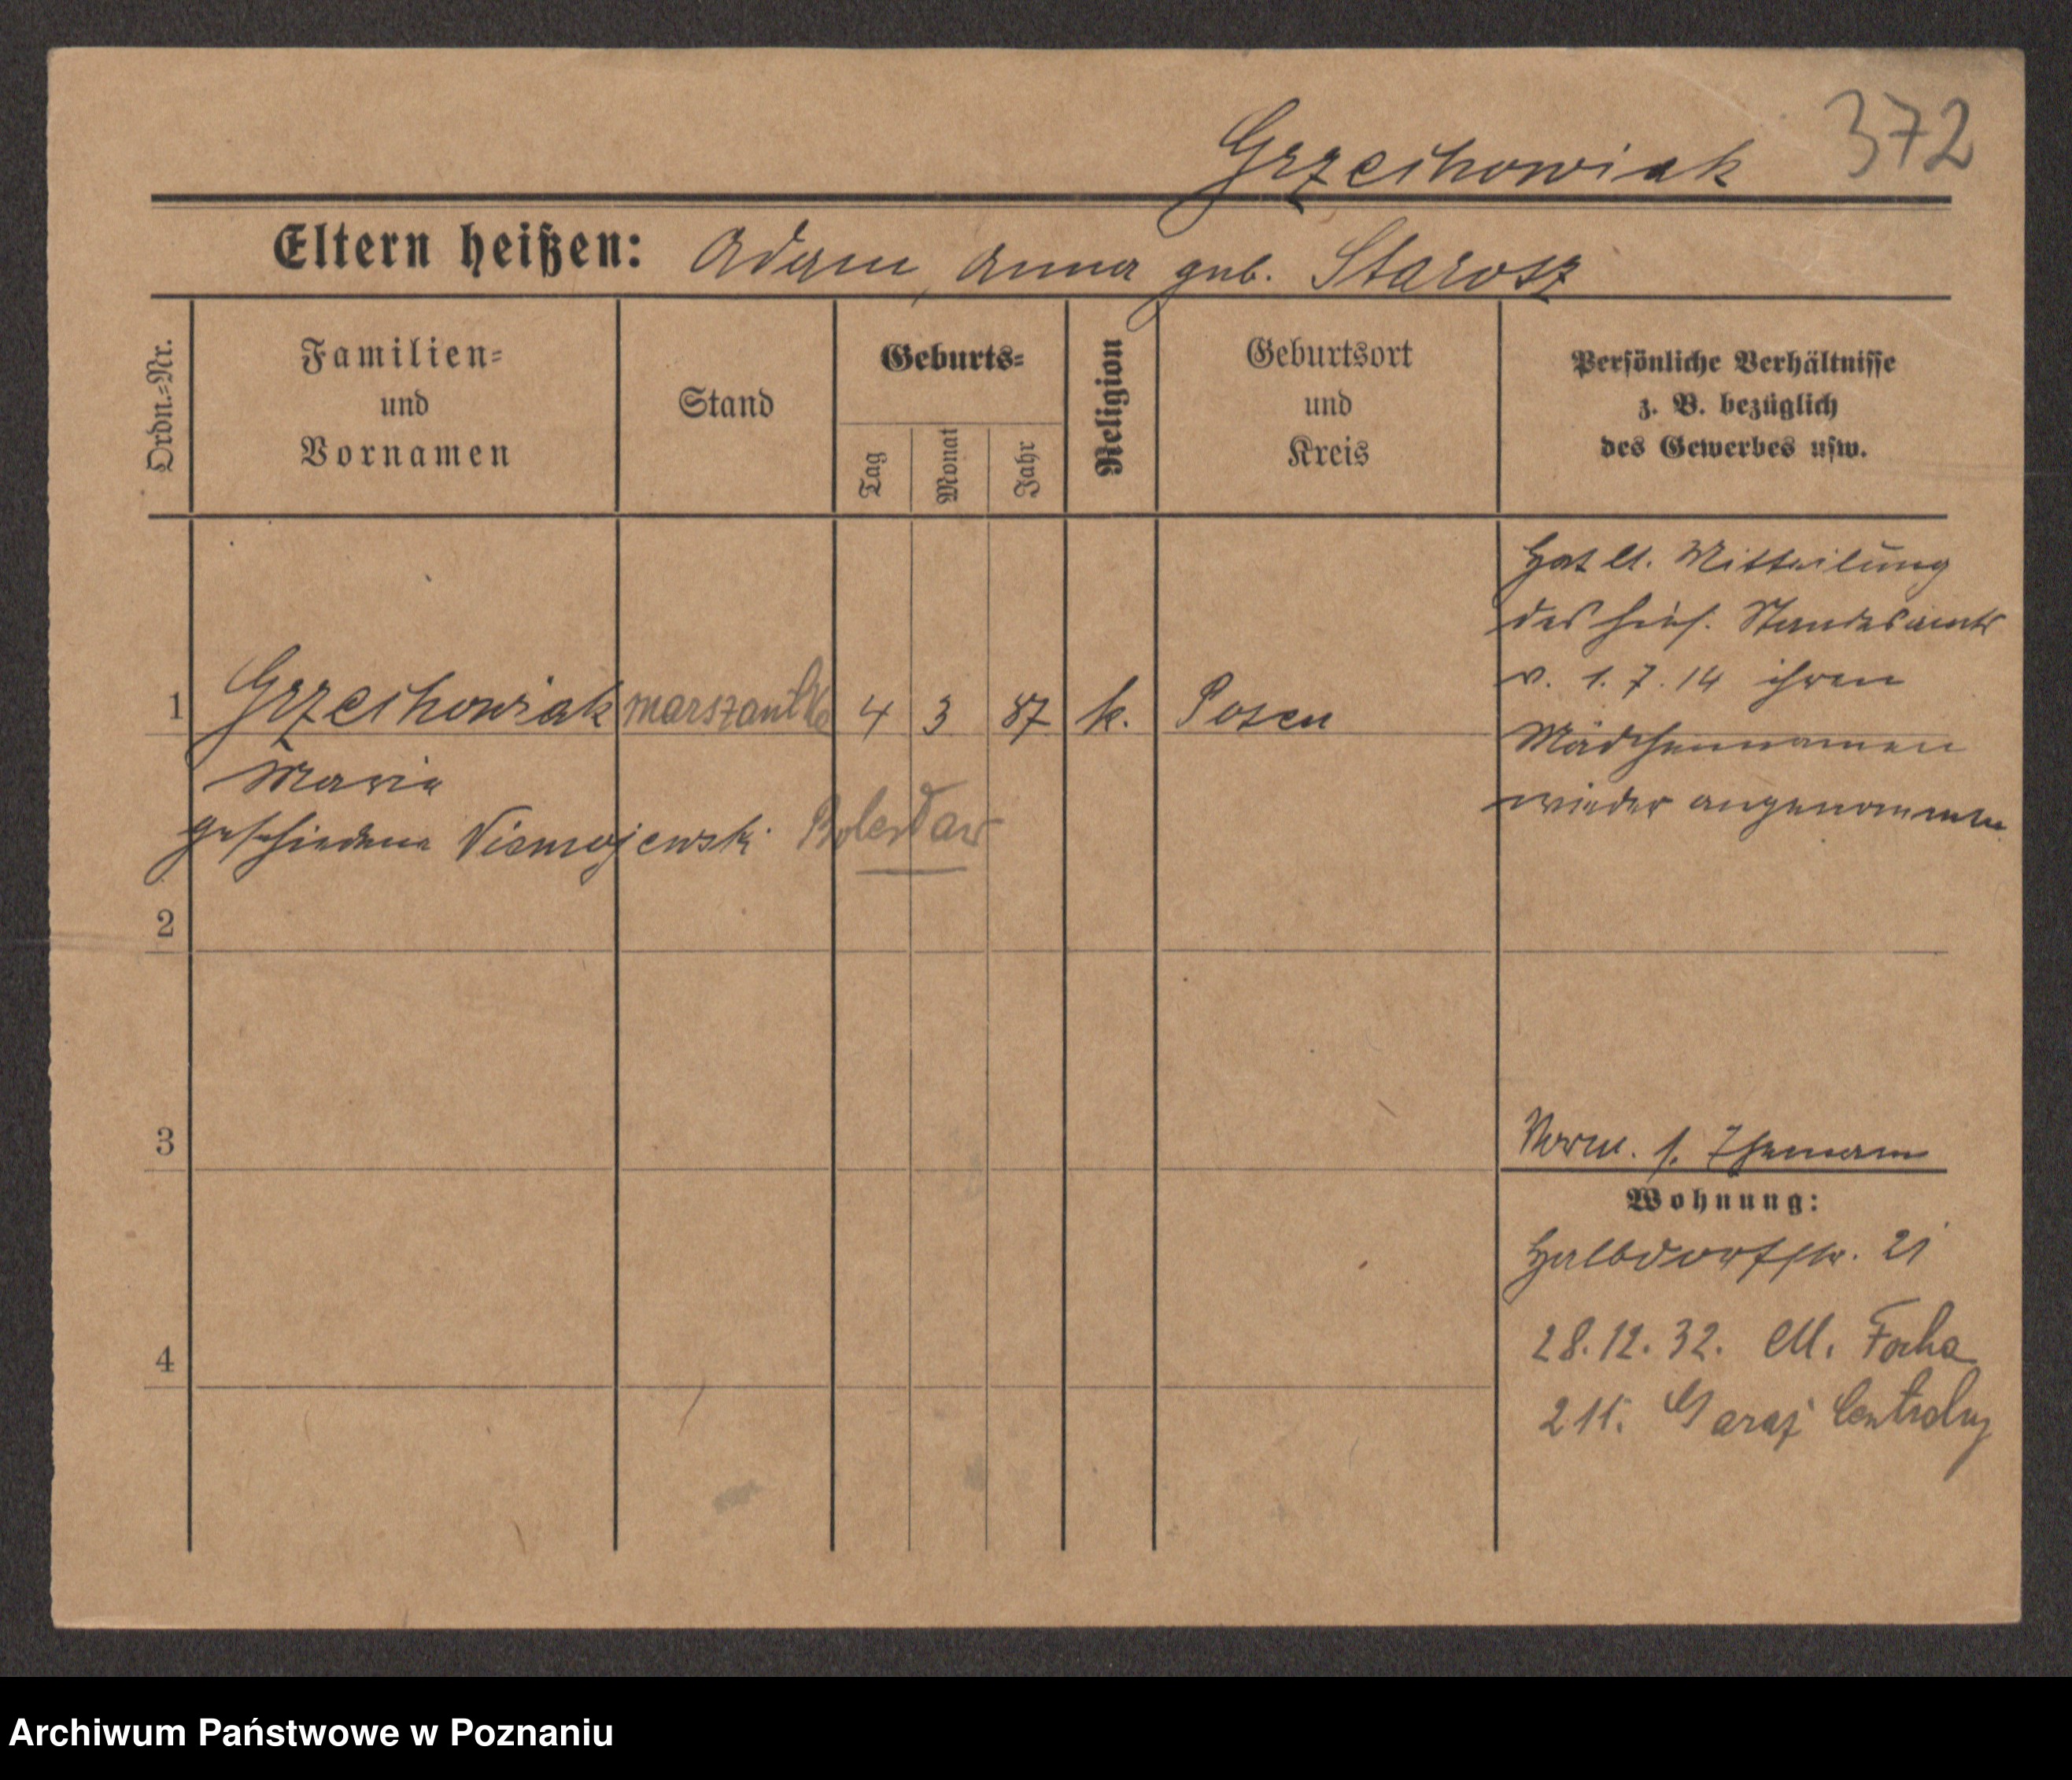 372
Grzechowiak
Eltern heißen: Adam, Anna geb. Starosz
Ordn.=Nr.
Familien=
und
Vornamen
Stand
Geburts=
Tag
Monat
Jahr
Religion
Geburtsort
und
Kreis
Persönliche Verhältnisse
z. B. bezüglich
des Gewerbes usw.
Hat lt. Mitteilung
des hies. Standesamts
v. 1.7.14 ihren
Mädchennamen
wieder angenommen
1 Grzechowiak 4 3 87 k. Posen
Maria
geschiedene Bolesław
2
3
Verm. s.
Wohnung:
Halbdorfstr. 21
4
28.12.32. M. Focha
Garaż Centralny
Archiwum Państwowe w Poznaniu